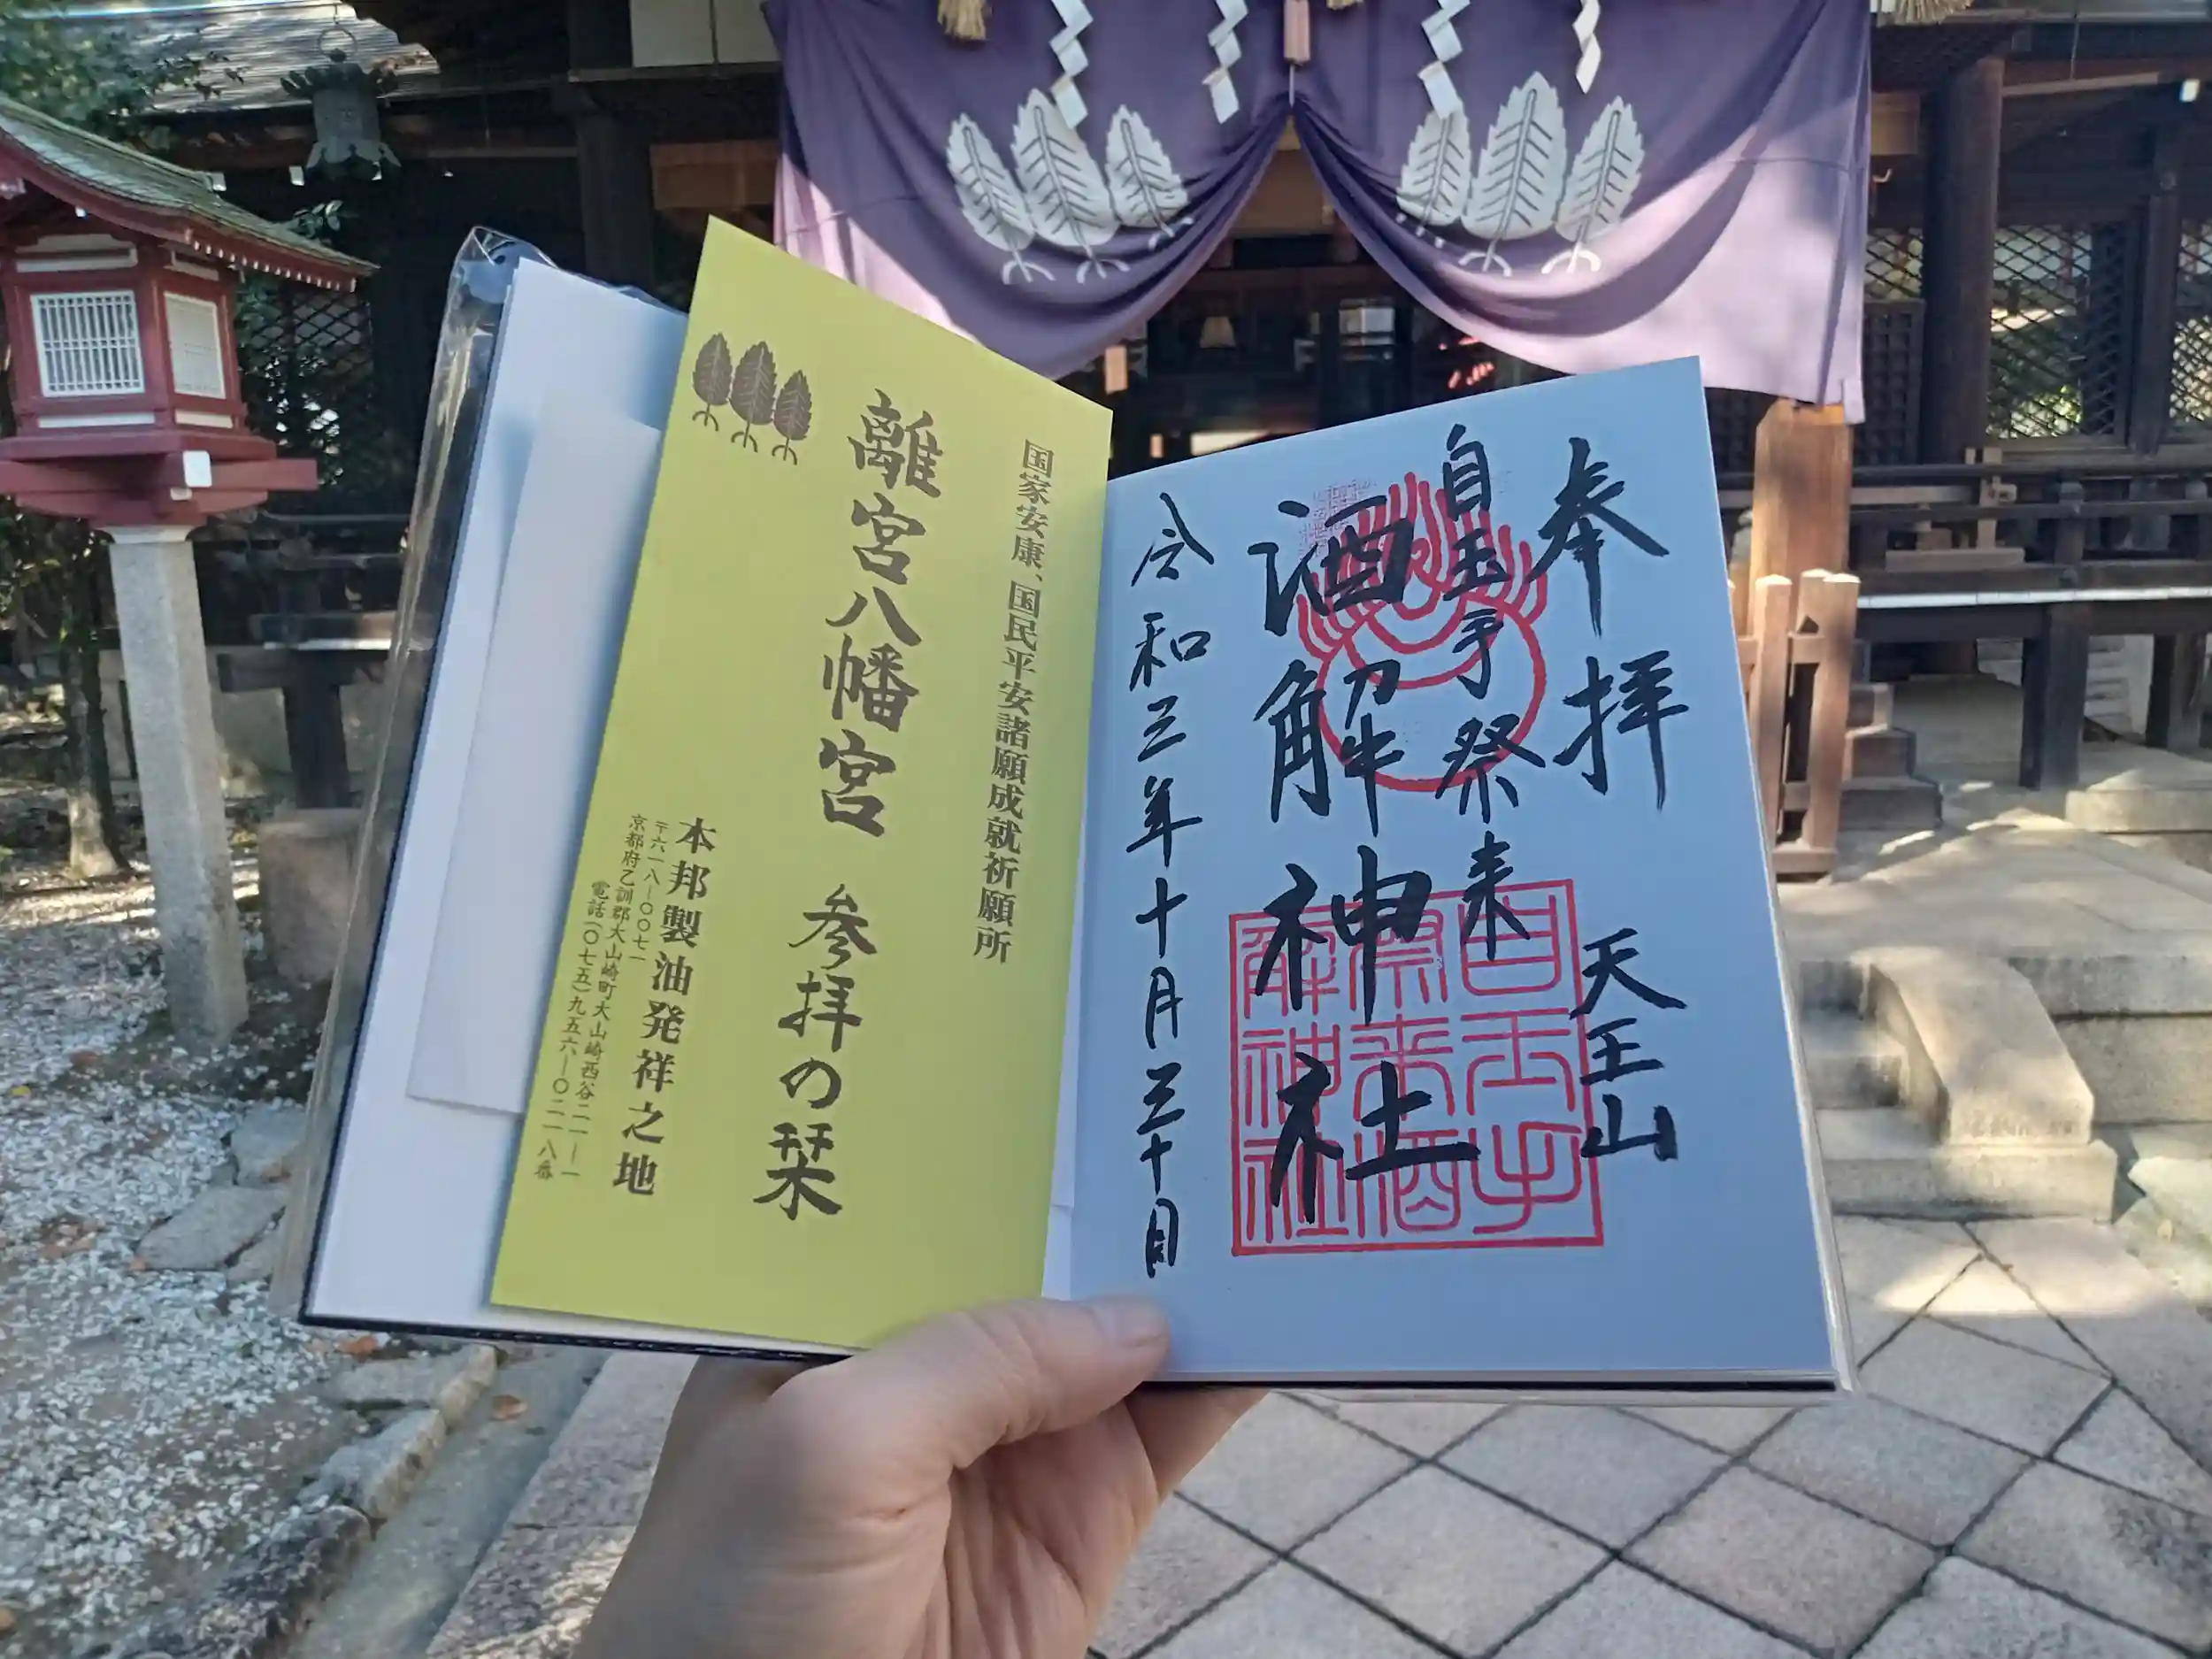 奉拝 天王山
自玉手祭来
酒解神社
令和三年十月三十日
自玉手
祭来酒
解神社
国家安康、国民平安諸願成就祈願所
離宮八幡宮 参拝の栞
本邦製油発祥之地
〒六一八―〇〇七一
京都府乙訓郡大山崎町大山崎西谷二一―一
電話(〇七五)九五六―〇二一八番